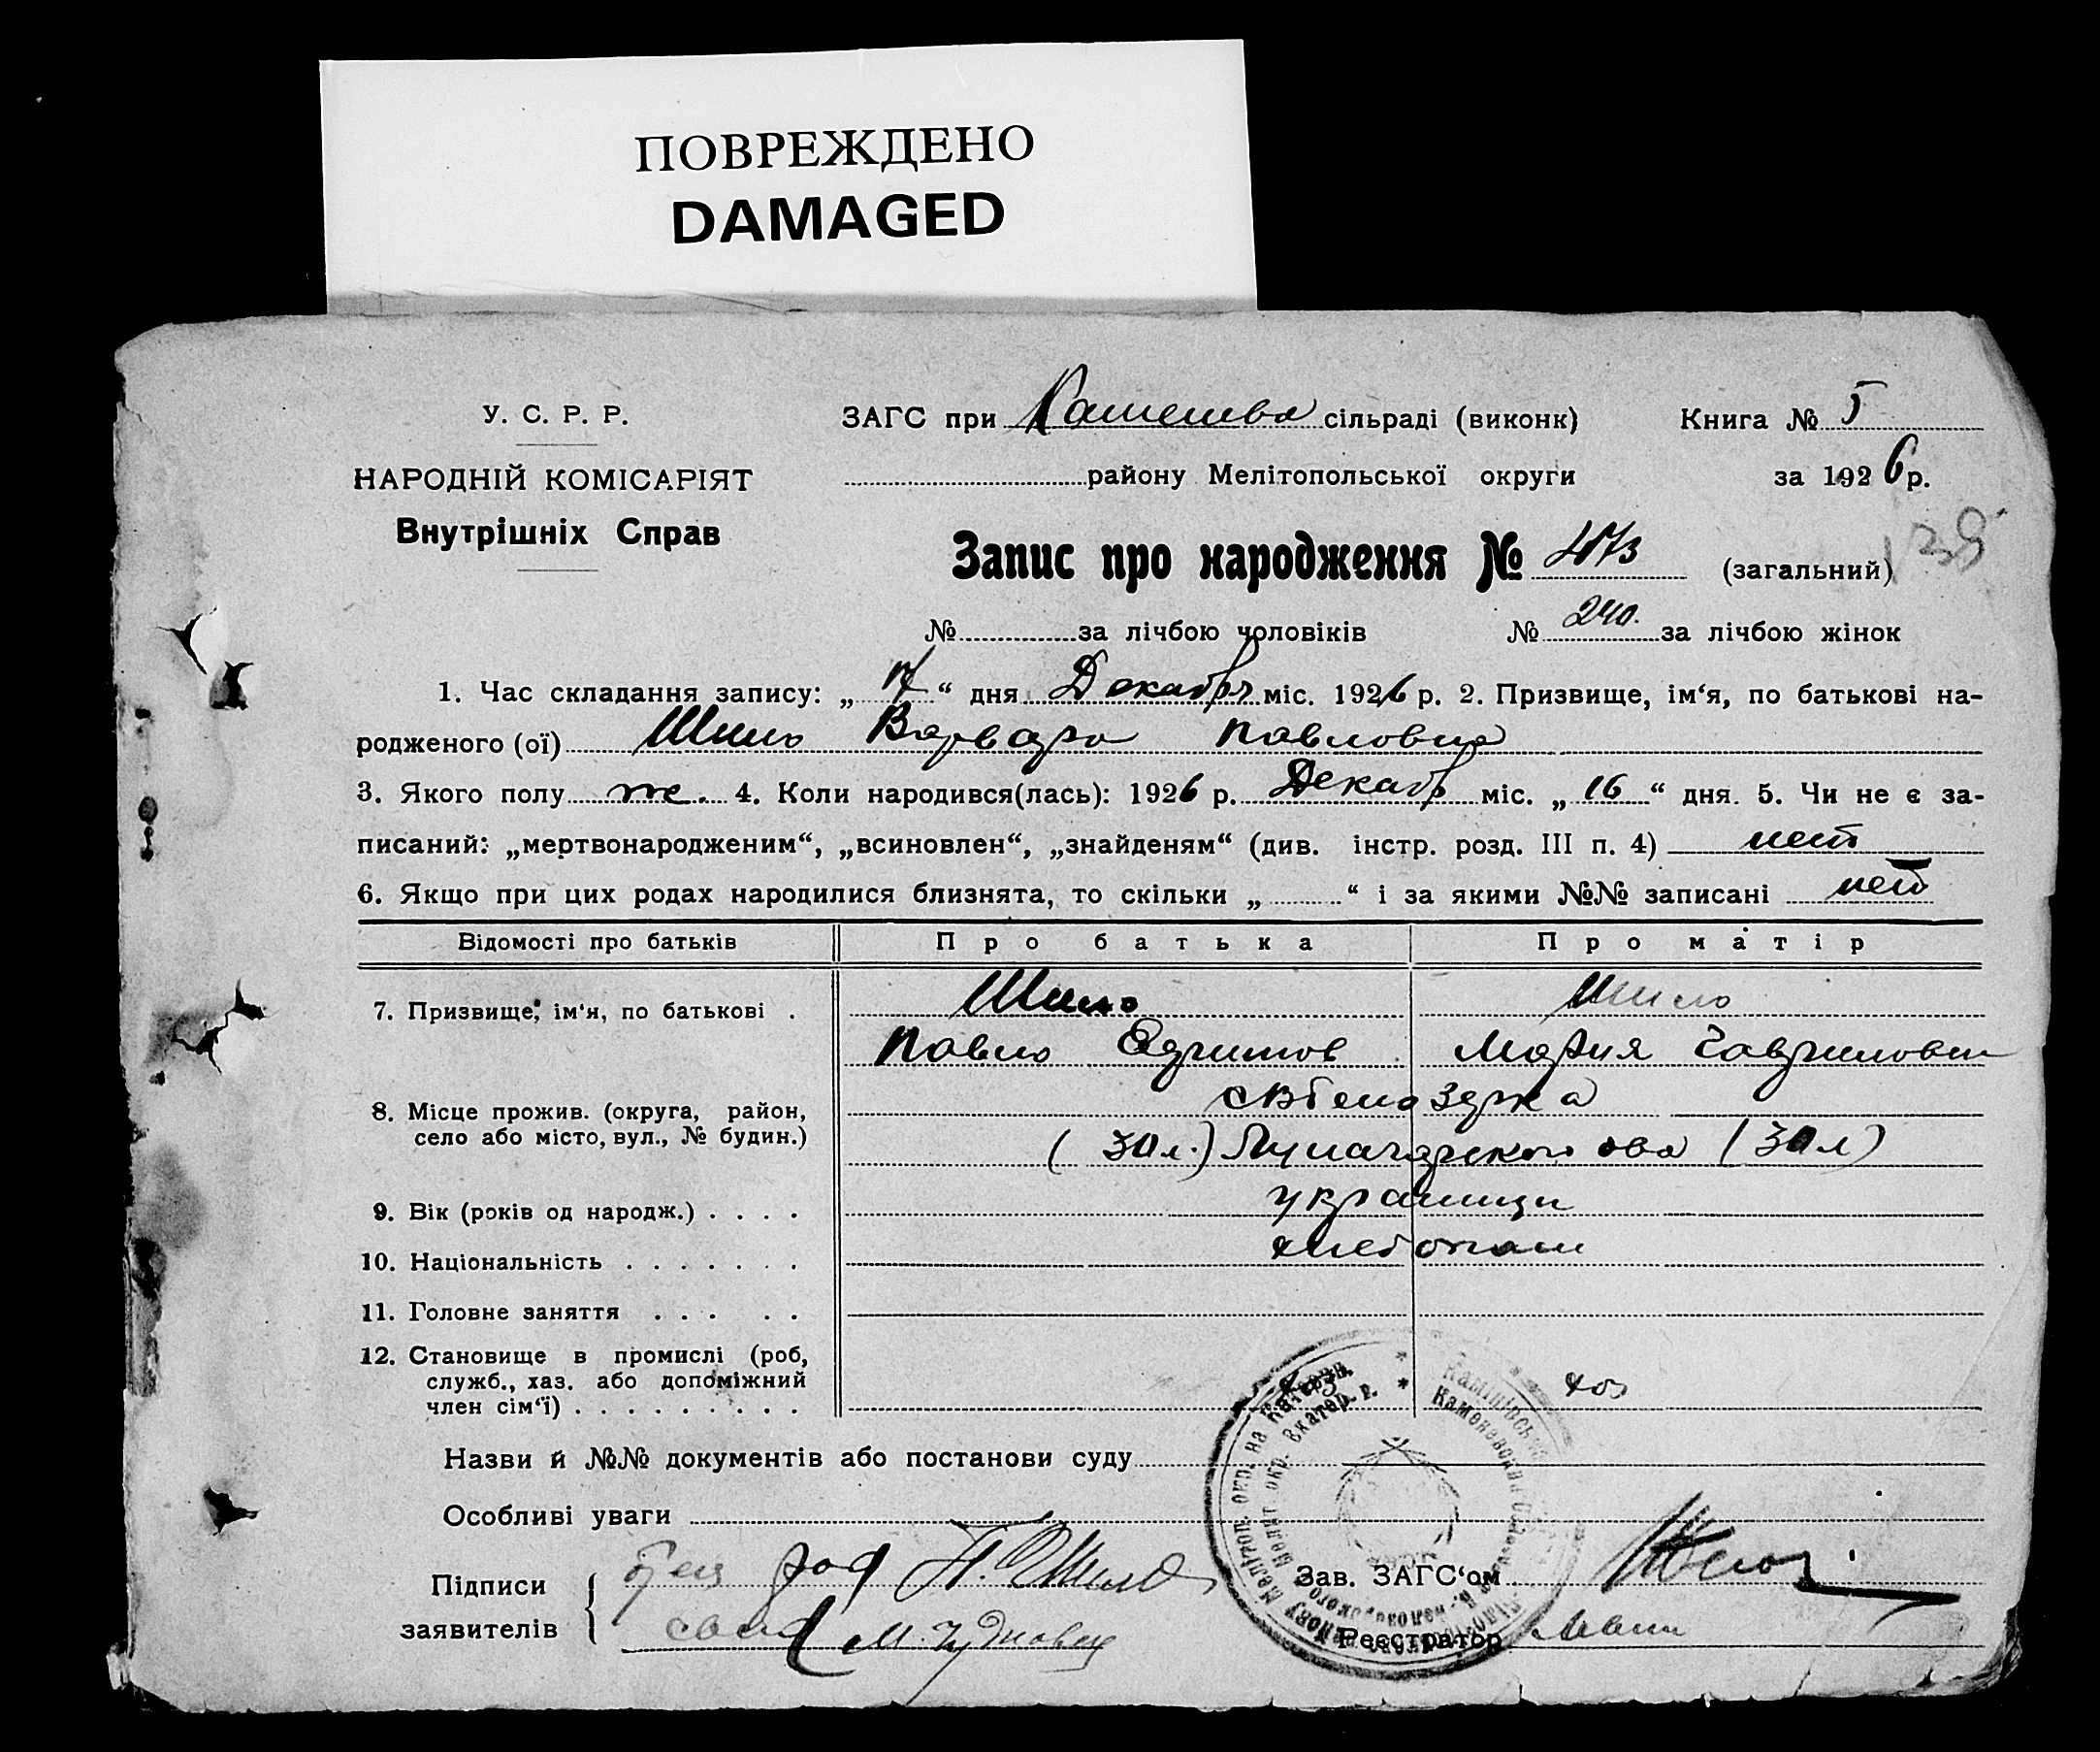 ПОВРЕЖДЕНО
DAMAGED
У. С. Р. Р.
ЗАГС при сільраді (виконк) Книга № 5
НАРОДНІЙ КОМІСАРІЯТ
району Мелітопольської округи за 1926 р.
Внутрішніх Справ
138
Запис про народження № 473 (загальний)
№ за лічбою чоловіків № 240. за лічбою жінок
1. Час складання запису: „17“ дня Декабря міс. 1926 р. 2. Призвище, ім‘я, по батькові на-
родженого (ої) Шило Варвара Павловна
3. Якого полу ж. 4. Коли народився(лась): 1926 р. Декабр міс. „16“ дня. 5. Чи не є за-
писаний: „мертвонародженим“, „всиновлен“, „знайденям“ (див. інстр. розд. III п. 4) нет
6. Якщо при цих родах народилися близнята, то скільки „ “ і за якими №№ записані нет
Відомості про батьків Про батька Про матір
7. Призвище, ім‘я, по батькові . Шило Шило
Павло Мария Гаврилов
8. Місце прожив. (округа, район,
село або місто, вул., № будин.)
(30 л.) (30 л)
9. Вік (років од народж.) . . . . украинцы
10. Національність . . . . . . . хлебопаш
11. Головне заняття . . . . .
12. Становище в промислі (роб,
служб., хаз. або допоміжний
член сім‘ї) . . . . . . . . . хоз
Назви й №№ документів або постанови суду
Особливі уваги
Підписи
заявителів
П. Шило
М.
Зав. ЗАГС‘ом
Реєстратор